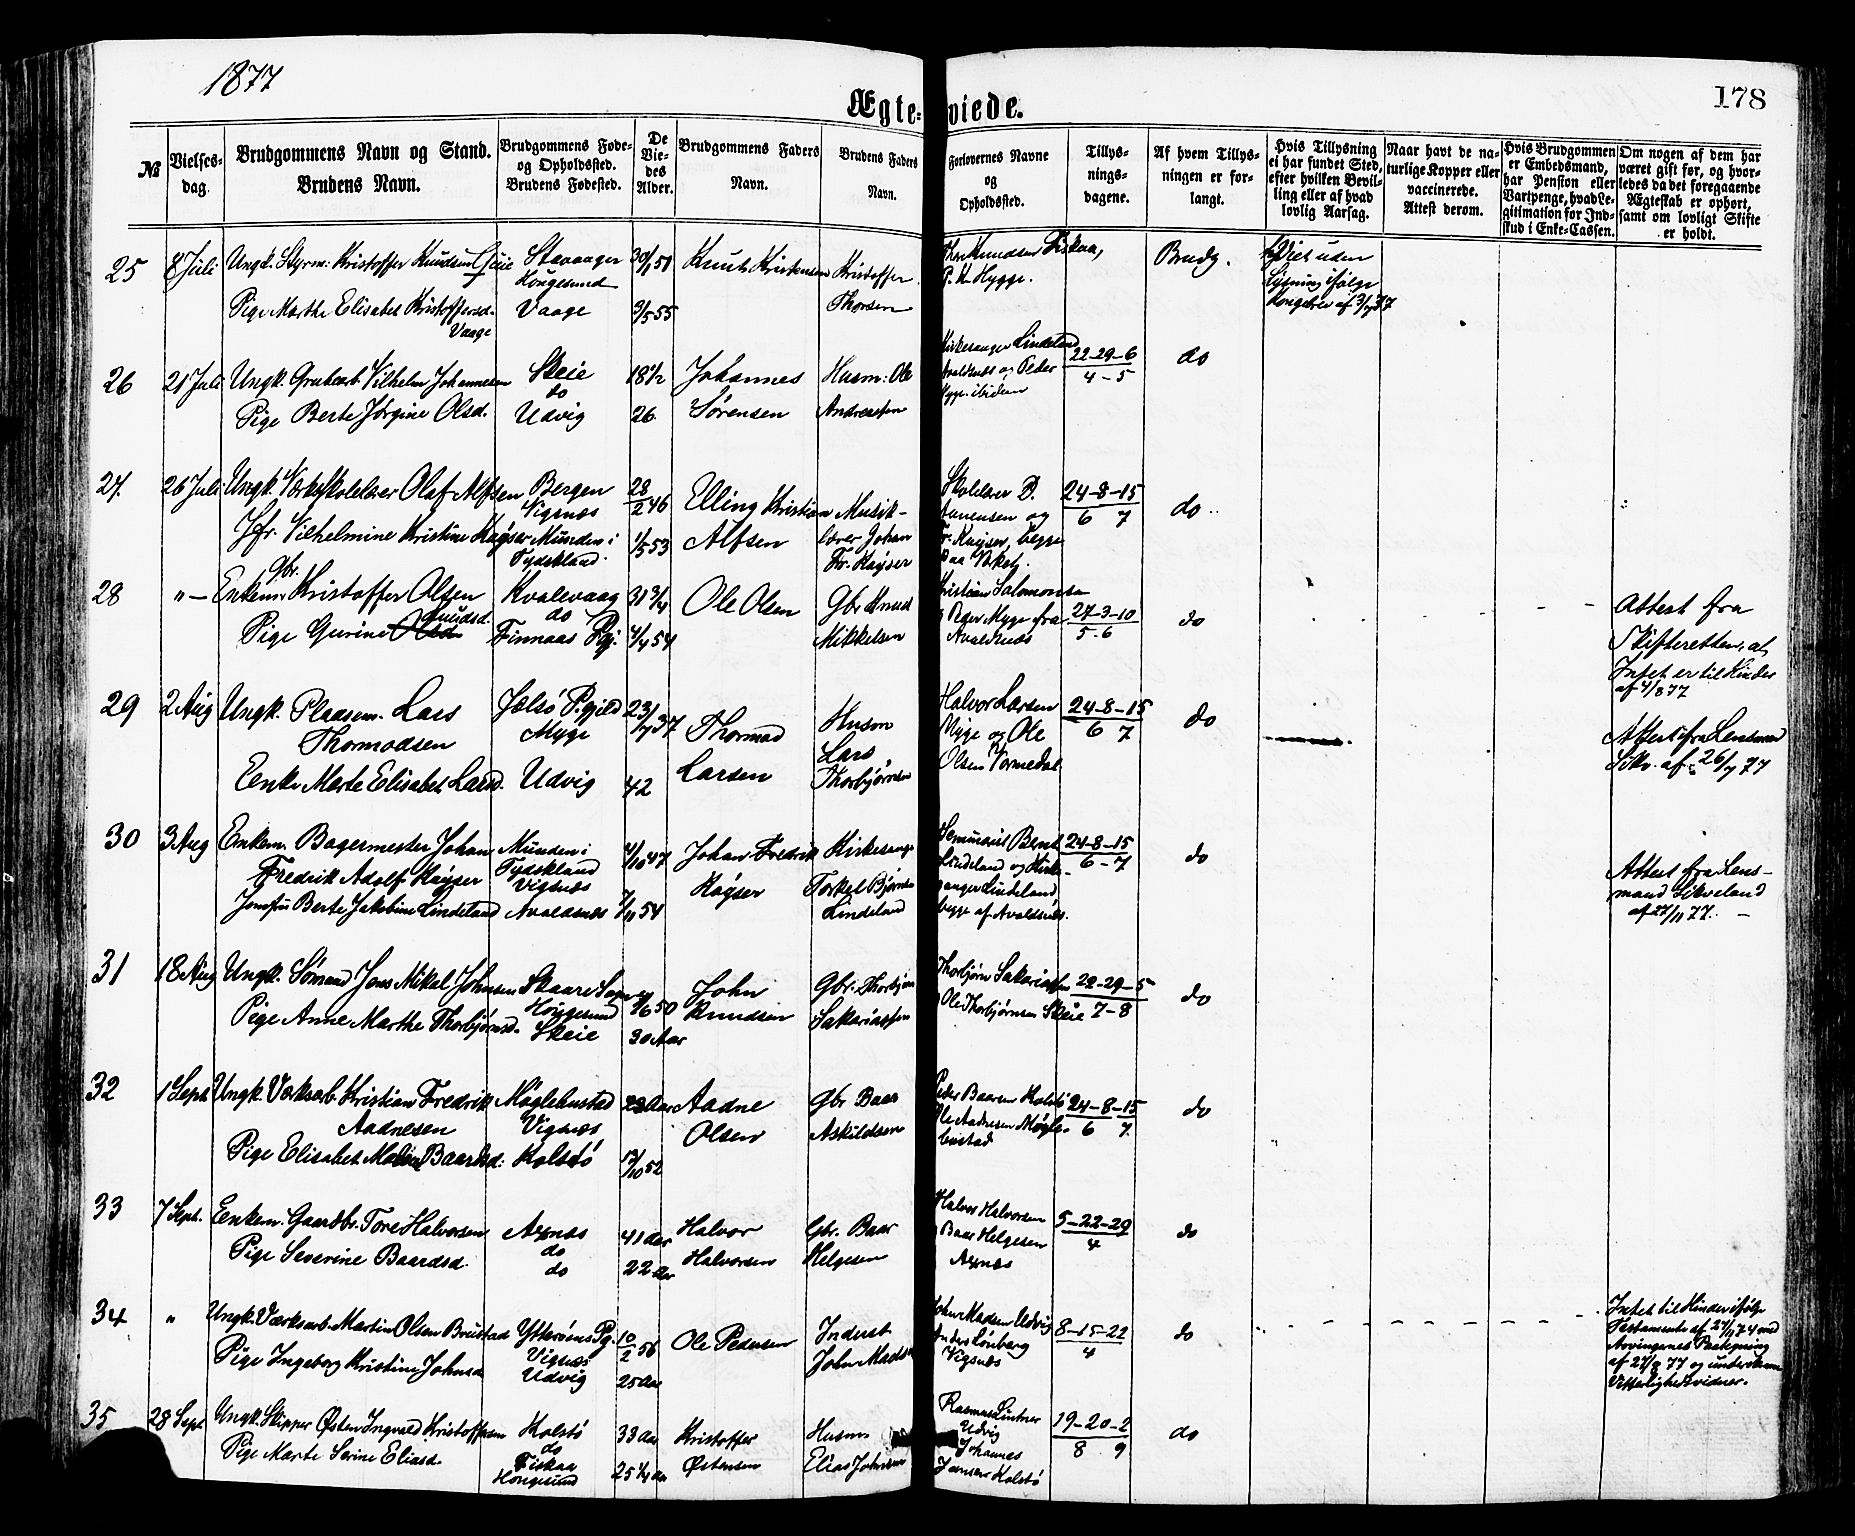 1877
178
Ægteviede.
№
Vielsesdag.
Brudgommens Navn og Stand.
Brudens Navn.
Brudgommens Føde-
og Opholdssted.
Brudens Fødested.
De
Vie-
des
Alder.
Brudgommens Faders
Navn.
Brudens Faders
Navn.
Forlovernes Navne
og
Opholdssted.
Tillys-
nings-
dagene.
Af hvem Tillys-
ningen er for-
langt.
Hvis Tillysning
ei har fundet Sted,
efter hvilken Bevil-
ling eller af hvad
lovlig Aarsag.
Naar havt de na-
turlige Kopper eller
vaccinerede.
Attest derom.
Hvis Brudgommen
er Embedsmand,
har Pension eller
Vartpenge, hvad Le-
gitimation for Ind-
skud i Enke-Cassen.
Om nogen af dem har
været gift før, og hvor-
ledes da det foregaaende
Ægteskab er ophørt,
samt om lovligt Skifte
er holdt.
25 8 Juli Ungk. Styrm: Kristoffer Knudsen Stavanger Knut Kristensen Kristoffer
Hougesund
Pige Marthe Elisabet Kristoffersd. Vaage 3/5 55 Thorsen
Vaage
Thore Knudsen Fiskaa, Brudg. Viet uden
P. K. Hygge. Lysning ifølge
26 21 Juli Ungk. Grubearb. Vilhelm Johannesen Skeie 18 1/2 Johannes Husm: Ole
do
Pige Berte Jørgine Olsd. Udvig 26 Sørensen Andreassen
Kirkesanger Lindeland 22-29-6 do
Avaldsnes og Peder 4-5
Myge ibidem
27. 26 Juli Ungk. Værkskolelærer Olaf Alfsen Bergen 28/2 46 Elling Kristian Musik-
Vigsnæs
Jfr. Vilhelmine Kristine Kayser Münden i 1/5 53 Alfsen lærer Johan
Tydskland Fr. Kayser
Skolelærer P. 24-8-15 do
og 6 7
Fr. Kayser, begge
paa
28 "— gbr. Enkem. Kristoffer Olsen Kvalevaag 31 3/4 Ole Olsen Gbr Knud
do
Knudsd.
Pige Gurine Finnaas Pgj. 4/4 54 Mikkelsen
Kristian Salomonsen
Peder Myge fra 27-3-10 do
Avaldsnes 5-6
Attest fra
Skifteretten, at
Intet er til Hinder
af 4/8 77
29 2 Aug Ungk. Pladsem. Lars Jelsø P.gjeld 23/7 37 Thormod Husm
Thormodsen Myge Lars
Eenke Marte Elisabet Larsd. Udvig 42 Larsen Thorbjørnsen
Halvor Larsen 24-8-15 do
Myge og Ole 6 7
Olsen Vormedal
Attest fra Lensmand
Sikv. af 26/7 77
30 3 Aug Enkem. Bagermester Johan Münden i 4/10 47 Johan Fredrik Kirkesanger
Fredrik Adolf Kayser Tydskland Kayser Torkel Bjørnsen
Vigsnæs
Jomfru Berte Jakobine Lindeland Avaldsnæs 7/11 54 Lindeland
Seminarist Bernt 24-8-15 do
Lindeland og Kirke- 6-7
sanger Lindeland
begge af Avaldsnæs.
Attest fra Lens-
mand Sikveland
af 27/11 77. —
31 18 Aug Ungk. Sømand Jens Mikal Johnsen Skaare Sogn 4/6 50 John Gbr. Thorbjørn
Houggesund Knudsen Sakariassen
Pige Anne Marthe Thorbjørnsd. Skeie 30 Aar
Thorbjørn Sakariassen 22-29-5 do
Ole Thorbjørnsen Skeie 7-8
32 1 Sept Ungk. Værksarb. Kristian Fredrik Møglebustad 23 Aar Aadne Gbr Baar
Aadnesen Vigsnæs Olsen Askildsen
Pige Elisabet Malene Baardsd: Kolstø 12/10 52
Peder Baarsen Kolstø 24-8-15 do
Ole Aadnesen Møgle- 6 7
bustad
33 7 Sept. Eenkem. Gaardbr. Tore Halvorsen Axnæs 41 aar Halvor Gbr. Baar
do
Pige Severine Baardsd. do 22 aar Halvorsen Helgesen
Halvor Halvorsen 5-22-29 do
Baar Helgesen 4
Axnæs
34 " Ungk. Værksarb. Martin Olsen Brustad Ytterøens Pg. 10/2 56 Ole Pedersen Inderst
Vigsnæs
Pige Ingeborg Kristine Johnsd. Udvig 25 aar John Madsen
John Madsen Udvig 8-15-22 do
Anders Lønberg 4
Vigsnæs
Intet til Hinder ifølge
Testamente af 27/11 74 med
Arvingernes Paategning
af 27/8 77 og underskrevne
Vitterlighedsvidner.
35 28 Sept Ungk. Skipper Østen Ingvald Kristoffersen Kolstø 33 aar Kristoffer Husm
do
Pige Marte Serine Eliasd. Fiskaa 25 1/4 aar Østensen Elias Johnsen
Hougesund
Rasmus Lintner 19-20-2 do
Udvig 8 9
Johannes
Jansen Kolstø